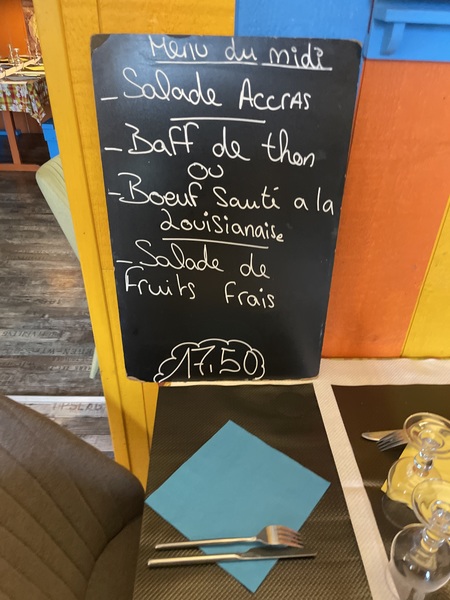 Menu du midi
- Salade Accras
- Baff de thon
ou
- Boeuf Sauté a la
Louisianaise
- Salade de
Fruits Frais
17,50